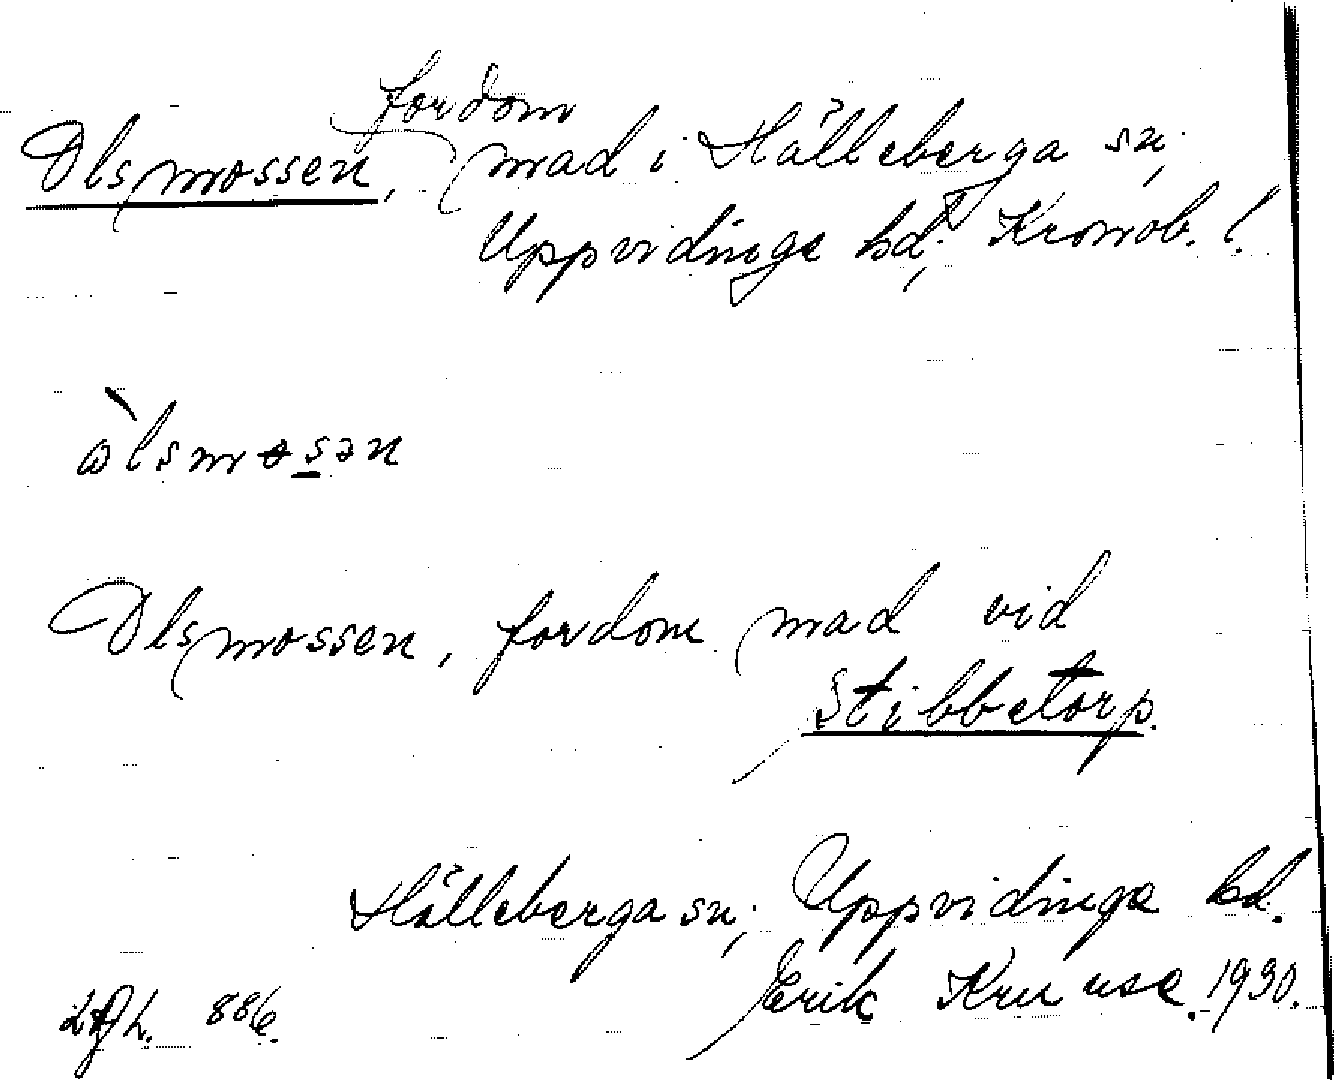 fordom
Olsmossen, mad i Hälleberga sn,
Uppvidinge hd, Kronob. l.
òlsmosən
Olsmossen, fordom mad vid
Stibbetorp.
Hälleberga sn, Uppvidinge hd.
Erik Kruuse. 1930.
886.